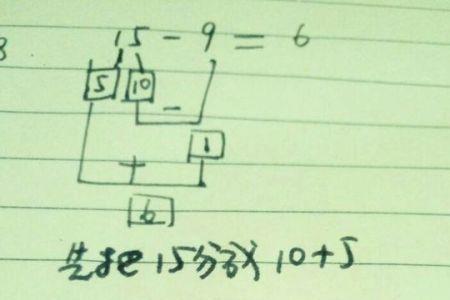 15 - 9 = 6
5 10
-
1
+
6
先把15分成10+5